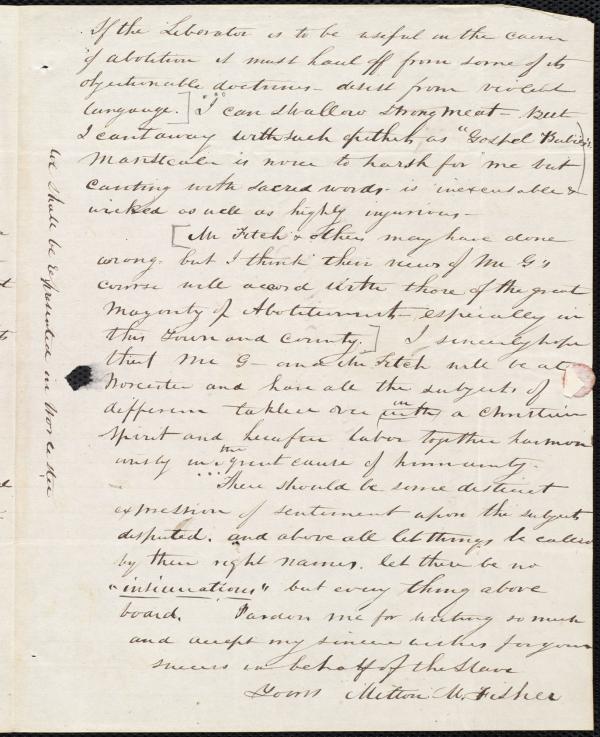 If the Liberator is to be useful in the cause
of abolition it must haul off from some of its
objectionable doctrines - desist from violent
langauge.] I can swallow strong meat - But
I cant away with such epithets as "Gospel
is none to harsh for me but
canting with sacred words - is inexcusable &
wicked as well as highly injurious -
[Mr Fitch & others may have done
wrong. but I think their views of Mr G's
course will accord with those of the great
majority of Abolitionists - especially in
this Town and County.] I sincerely hope
that Mr G - and Mr Fitch will be at
Worcester and have all the subjects of
difference talked over in a Christian
spirit and hereafter labor together harmon
iously in the great cause of humanity.
There should be some distinct
expression of sentiment upon the subjects
disputed. and above all let things be called
by their right names. let there be no
"insinuations" but every thing above
board. Pardon me for writing so much
and accept my sincere wishes for your
success in behalf of the Slave
Yours Milton M. Fisher
We shall be represented in Worcester